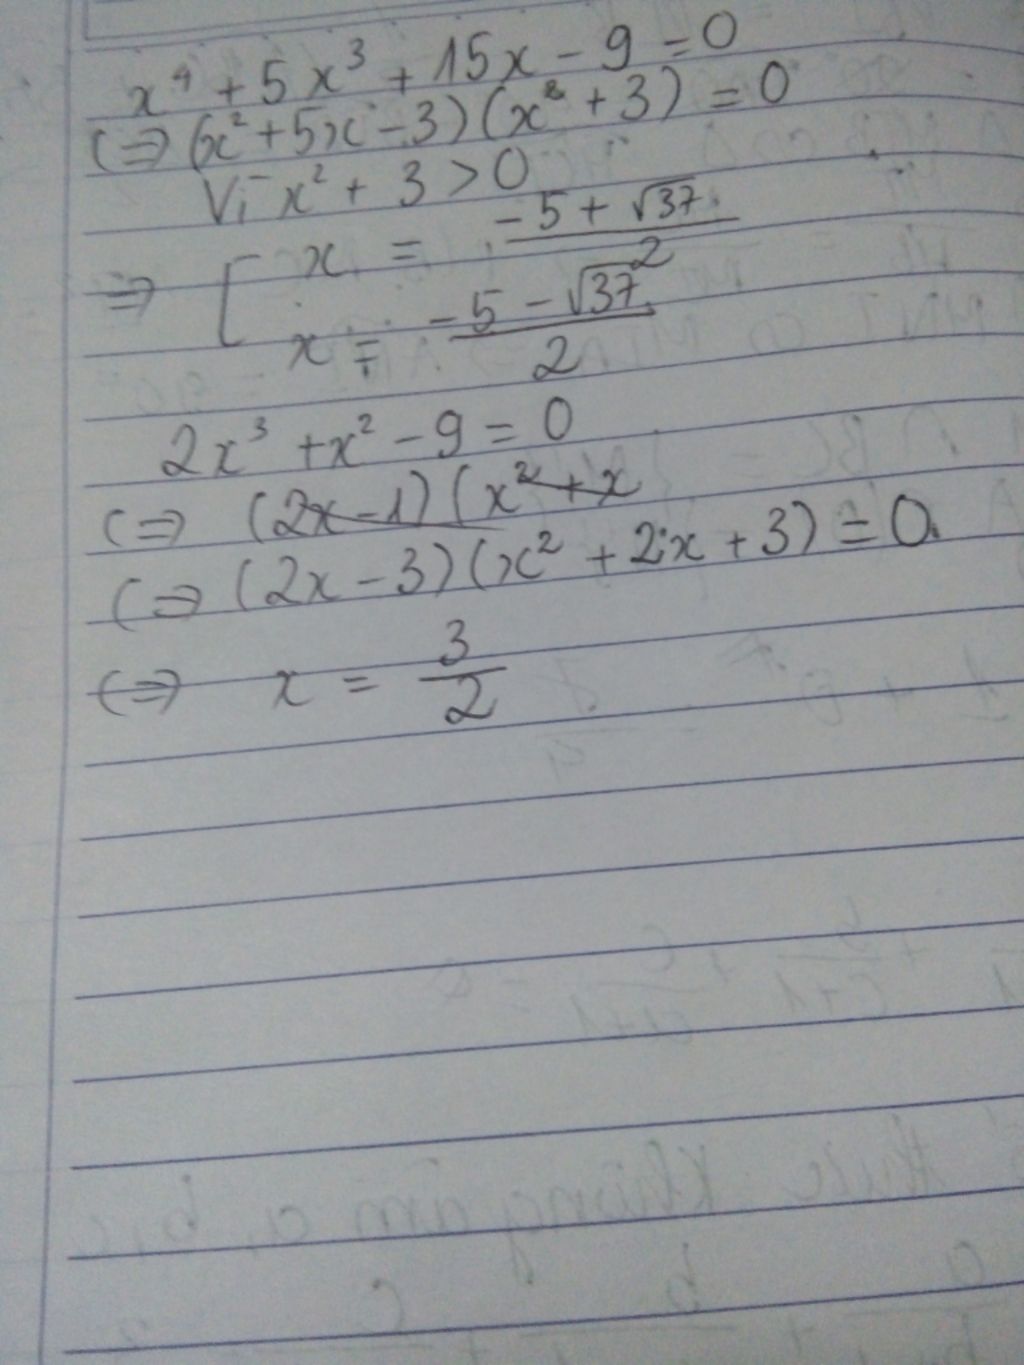 x⁴ + 5x³ + 15x - 9 = 0
(=> (x² + 5x - 3)(x² + 3) = 0
Vì x² + 3 > 0
=> [ x = (-5 + √37)/2
x = (-5 - √37)/2
2x³ + x² - 9 = 0
(=> (2x - 1)(x² + x
(=> (2x - 3)(x² + 2x + 3) = 0.
(=> x = 3/2